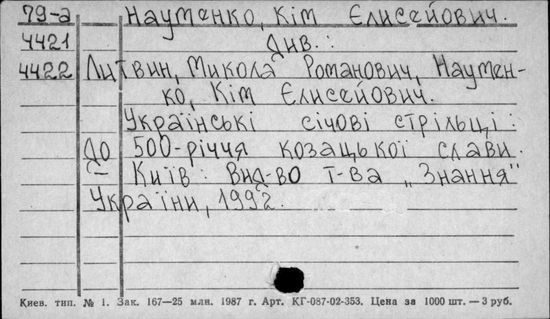 79-а Науменко, Кім Єлисейович.
4421 Див.:
4422 Литвин, Микола Романович, Наумен-
ко, Кім Єлисейович.
Українські січові стрільці:
До 500-річчя козацької слави.
— Київ: Вид-во т-ва „Знання"
України, 1992.
Киев. тип. № 1. Зак. 167—25 млн. 1987 г. Арт. КГ-087-02-353. Цена за 1000 шт. — 3 руб.